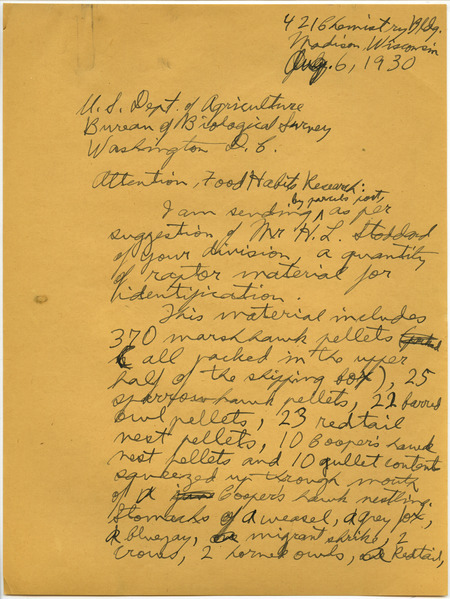 421 Chemistry Bldg.
Madison, Wisconsin
Aug. 6, 1930
U. S. Dept. of Agriculture
Bureau of Biological Survey
Washington D. C.
Attention, Food Habits Research:
by parcels post,
I am sending ^ as per
suggestion of Mr H. L. Stoddard
of your division a quantity
of raptor material for
identification.
This material includes
370 marshhawk pellets
( all packed in the upper
half of the shipping box), 25
sparrowhawk pellets, 22 barred
owl pellets, 23 redtail
nest pellets, 10 Cooper's hawk
nest pellets and 10 gullet contents
squeezed up through mouth
of a Cooper's hawk nestling.
Stomachs of a weasel, a grey fox,
a bluejay, migrant shrike, 2
crows, 2 horned owls, redtail,